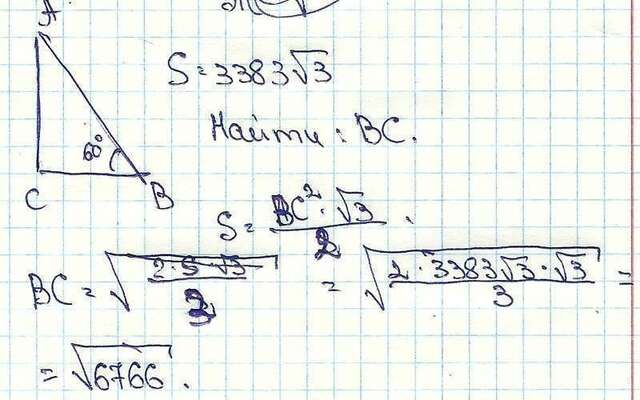 A
S = 3383√3
Найти : BC.
60°
C
B
S = BC² · √3 / 2 .
BC = √(2 · S · √3 / 3) = √(2 · 3383√3 · √3 / 3) =
= √6766 .